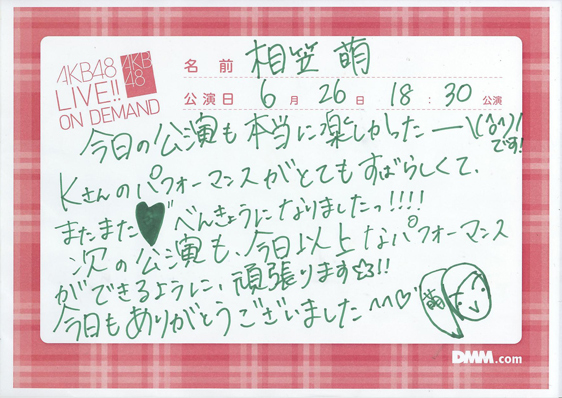 AKB48
LIVE!!
ON DEMAND
AKB
48
名前 相笠 萌
公演日 6月 26日 18:30 公演
今日の公演も本当に楽しかったー\(^o^)/
です!
Kさんのパフォーマンスがとてもすばらしくて、
またまた♥べんきょうになりましたっ!!!!
次の公演も、今日以上なパフォーマンス
ができるように、頑張ります☆彡!!
今日もありがとうございました^^♡
萌
DMM.com